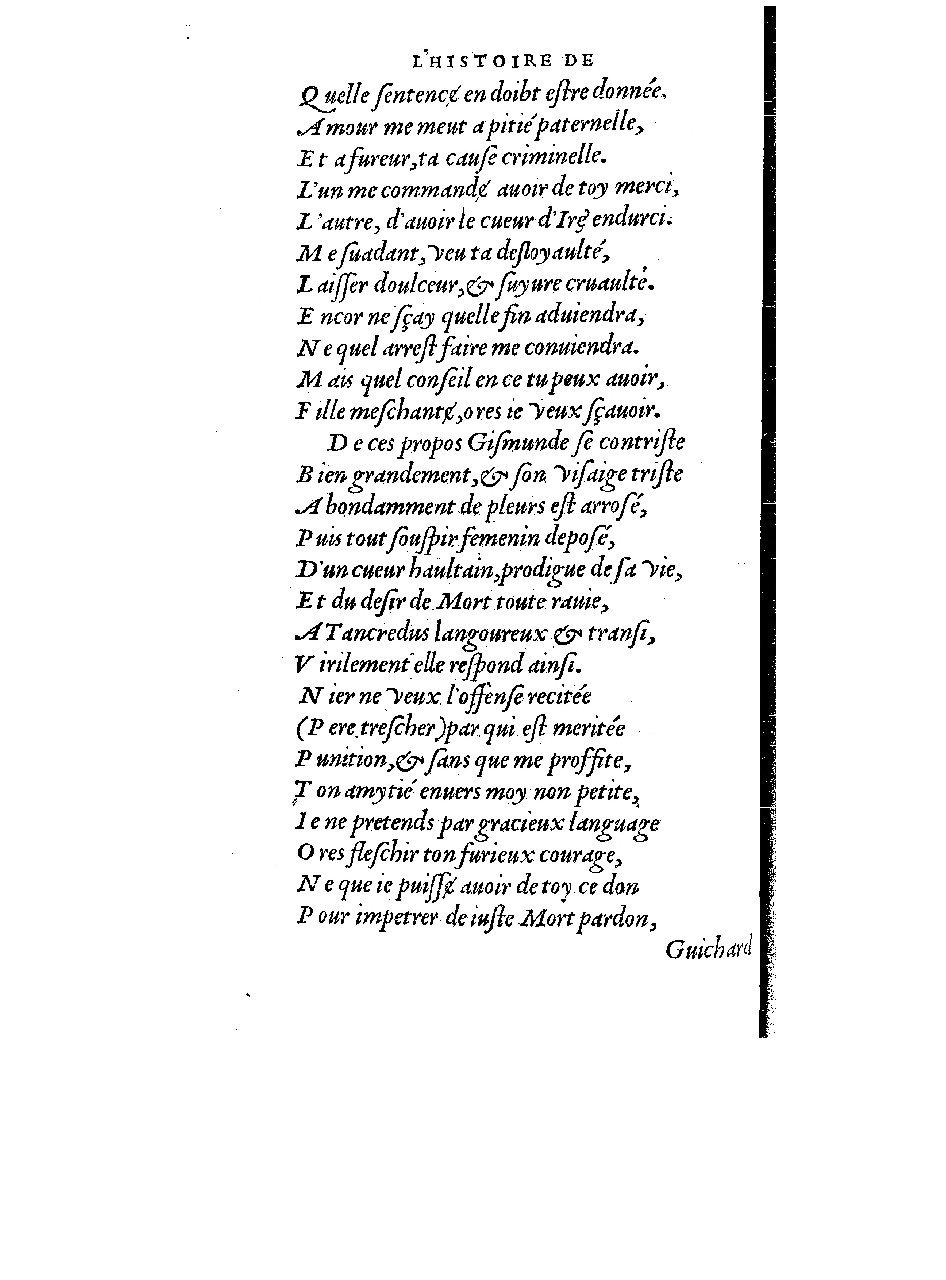 L'HISTOIRE DE
Quelle ſentencɇ en doibt eſtre donnée.
Amour me meut a pitié paternelle,
Et a fureur, ta cauſe criminelle.
L'un me commandɇ auoir de toy merci,
L'autre, d'auoir le cueur d'Irɇ endurci.
Me ſuadant, veu ta deſloyaulté,
Laiſſer doulceur, & ſuyure cruaulté.
Encor ne ſçay quelle fin aduiendra,
Ne quel arreſt faire me conuiendra.
Mais quel conſeil en ce tu peux auoir,
Fille meſchantɇ, ores ie veux ſçauoir.
De ces propos Giſmunde ſe contriſte
Bien grandement, & ſon viſaige triſte
Abondamment de pleurs eſt arroſé,
Puis tout ſouſpir femenin depoſé,
D'un cueur haultain, prodigue de ſa vie,
Et du deſir de Mort toute rauie,
A Tancredus langoureux & tranſi,
Virilement elle reſpond ainſi.
Nier ne veux l'offenſe recitée
(Pere treſcher) par qui eſt meritée
Punition, & ſans que me proffite,
Ton amytié enuers moy non petite,
Ie ne pretends par gracieux language
Ores fleſchir ton furieux courage,
Ne que ie puiſſɇ auoir de toy ce don
Pour impetrer de iuſte Mort pardon,
Guichard